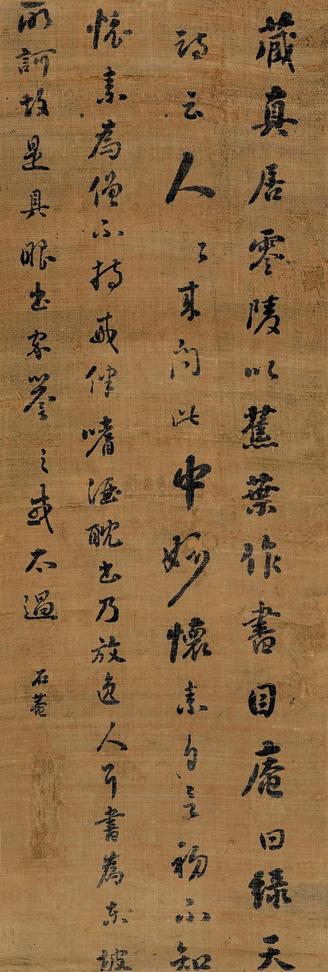 藏真居零陵以蕉葉作書目庵曰綠天
詩云人〻來問此中妙懷素自言初不知
懷素為僧不持戒律嗜酒酖書乃放逸人耳書為東坡
所訶故是具眼書家譽之或太過
石菴